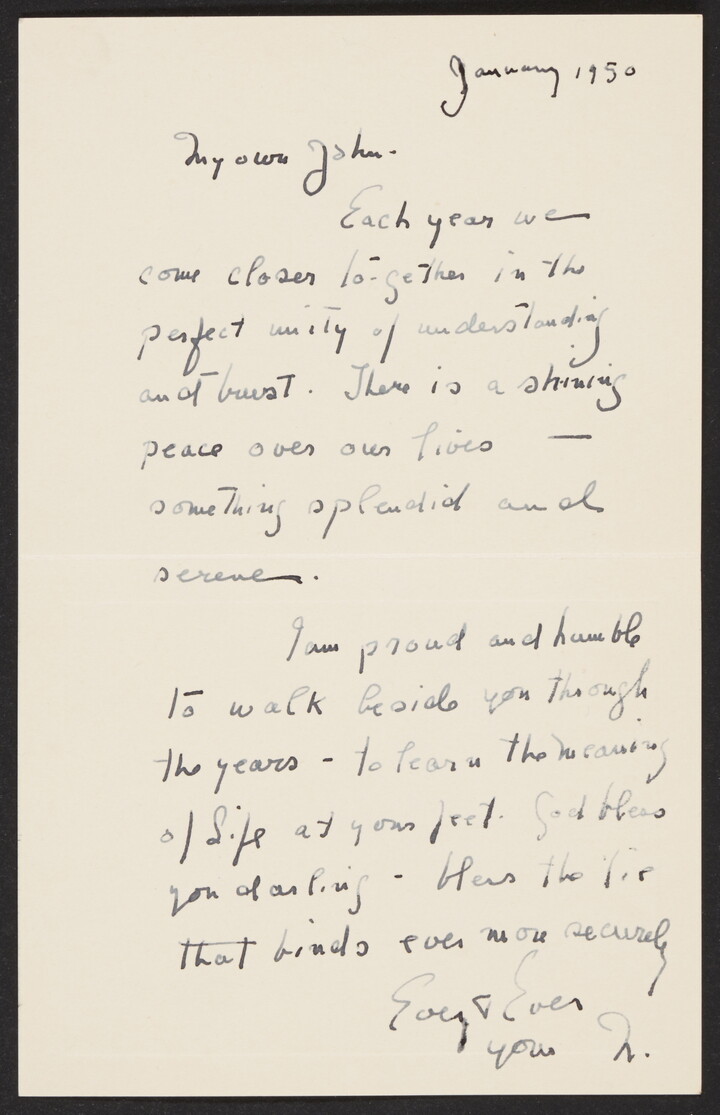 January 1950
My own John -
Each year we
come closer to-gether in the
perfect unity of understanding
and trust. There is a shining
peace over our lives —
something splendid and
serene.
I am proud and humble
to walk beside you through
the years - to learn the meaning
of Life at your feet. God bless
you darling - bless the tie
that binds ever more securely
Ever & Ever
your N.